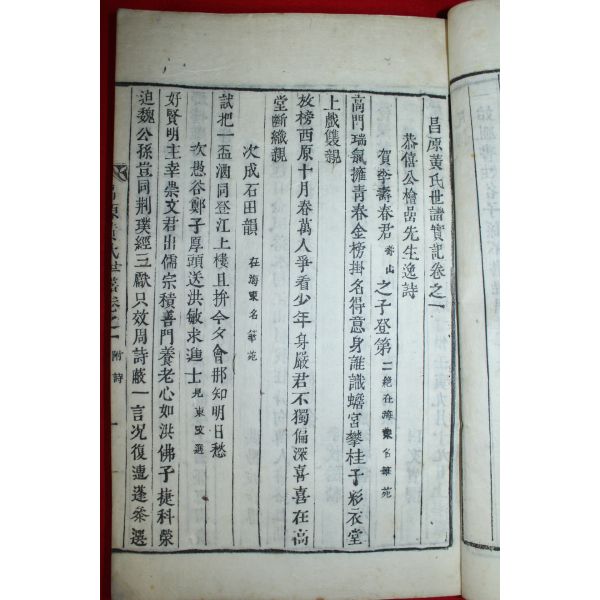 昌原黃氏世譜實記卷之一
恭僖公檜嵒先生逸詩
賀李壽春君 之子登第 二絕在海東名筆苑
高門瑞氣擁青春金榜掛名得意身誰識蟾宮攀桂子彩衣堂
上戲雙親
放榜西原十月春萬人爭看少年身嚴君不獨偏深喜喜在高
堂斷織親
次成石田韻 在海東名筆苑
試把一盃酒同登江上樓且拚今夕會那知明日愁
次愚谷鄭子厚頭送洪敏求進士 見東文選
好賢明主幸崇文君出儒宗積善門養老心如洪佛子捷科榮
迫魏公孫豈同荊璞經三獻只效周詩蔽一言況復連蓬參選
昌原黃氏世譜卷之一 附詩 一